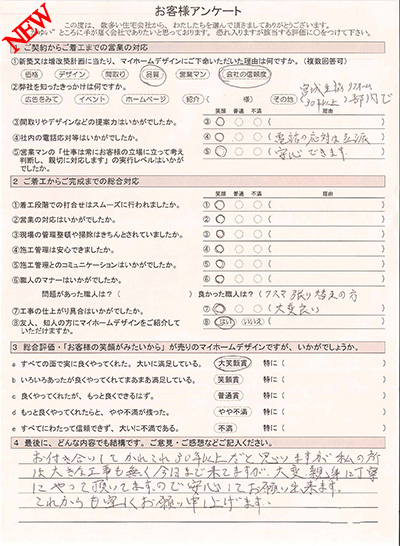 NEW
お客様アンケート
この度は、数多い住宅会社から、わたしたちを選んで頂きましてありがとうございます。
"かゆい"ところに手が届く会社でありたいと思っております。恐れ入りますが該当する評価に○をつけて下さい。
1 ご契約からご着工までの営業の対応
①新築又は増改築計画に当たり、マイホームデザインにご下命いただいた理由は何ですか。(複数回答可)
価格 デザイン 間取り 品質 営業マン 会社の信頼度
②弊社を知ったきっかけは何ですか。
広告をみて イベント ホームページ 紹介( 様) その他
30年以上
笑顔 普通 不満 理由
③間取りやデザインなどの提案力はいかがでしたか。 ③
④社内の電話応対等はいかがでしたか。 ④ 電話の応対は立派
⑤営業マンの「仕事は常にお客様の立場に立って考え ⑤ 安心できます
判断し、親切に対応します」の実行レベルはいかが
でしたか。
2 ご着工からご完成までの総合対応
笑顔 普通 不満 理由
①着工段階での打合せはスムーズに行われましたか。 ①
②営業の対応はいかがでしたか。 ②
③現場の管理整頓や掃除はきちんとされていましたか。 ③
④施工管理は安心できましたか。 ④
⑤施工管理とのコミュニケーションはいかがでしたか。 ⑤
⑥職人のマナーはいかがでしたか。 ⑥
問題があった職人は?( ) 良かった職人は?(クロス張り替えの方
⑦工事の仕上がり具合はいかがでしたか。 ⑦ 大変良い
⑧友人、知人の方にマイホームデザインをご紹介して ⑧ はい いいえ
いただけますか。
3 総合評価・「お客様の笑顔がみたいから」が売りのマイホームデザインですが、いかがでしょうか。
a すべての面で実に良くやってくれた。大いに満足している。 大笑顔賞 特に(
b いろいろあったが良くやってくれてまあまあ満足している。 笑顔賞 特に(
c 良くやってくれたが、もっと良くできるはず。 普通賞 特に(
d もっと良くやってくれたらと、やや不満が残った。 やや不満 特に(
e すべてにわたって信頼できず、大いに不満である。 不満 特に(
4 最後に、どんな内容でも結構です。ご意見・ご感想などご記入ください。
お付き合いしてかれこれ30年以上だと思いますが私の所
は大きな工事も無く今日まで来てますが、大変親身に丁寧
にやって頂いてますので安心してお願い出来ます。
これからも宜しくお願い申し上げます。